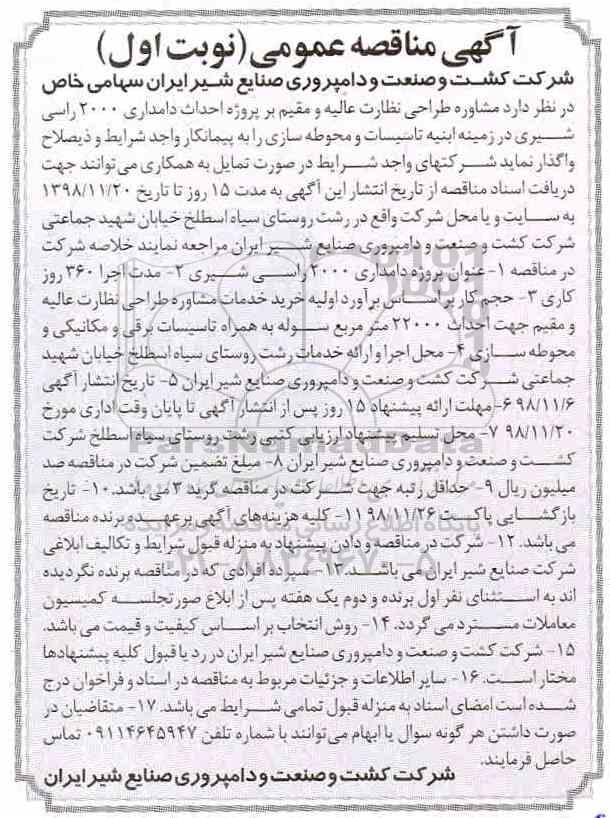 آگهی مناقصه عمومی (نوبت اول)
شرکت کشت و صنعت و دامپروری صنایع شیر ایران سهامی خاص
در نظر دارد مشاوره طراحی نظارت عالیه و مقیم بر پروژه احداث دامداری ۲۰۰۰ راسی
شیری در زمینه ابنیه تاسیسات و محوطه سازی را به پیمانکار واجد شرایط و ذیصلاح
واگذار نماید شرکتهای واجد شرایط در صورت تمایل به همکاری می توانند جهت
دریافت اسناد مناقصه از تاریخ انتشار این آگهی به مدت ۱۵ روز تا تاریخ ۱۳۹۸/۱۱/۲۰
به سایت و یا محل شرکت واقع در رشت روستای سیاه اسطلخ خیابان شهید جماعتی
شرکت کشت و صنعت و دامپروری صنایع شیر ایران مراجعه نمایند خلاصه شرکت
در مناقصه ۱- عنوان پروژه دامداری ۲۰۰۰ راسی شیری ۲- مدت اجرا ۳۶۰ روز
کاری ۳- حجم کار بر اساس برآورد اولیه خرید خدمات مشاوره طراحی نظارت عالیه
و مقیم جهت احداث ۲۲۰۰۰ متر مربع سوله به همراه تاسیسات برقی و مکانیکی و
محوطه سازی ۴- محل اجرا و ارائه خدمات رشت روستای سیاه اسطلخ خیابان شهید
جماعتی شرکت کشت و صنعت و دامپروری صنایع شیر ایران ۵- تاریخ انتشار آگهی
۹۸/۱۱/۶ ۶- مهلت ارائه پیشنهاد ۱۵ روز پس از انتشار آگهی تا پایان وقت اداری مورخ
۹۸/۱۱/۲۰ ۷- محل تسلیم پیشنهاد ارزیابی کتبی رشت روستای سیاه اسطلخ شرکت
کشت و صنعت و دامپروری صنایع شیر ایران ۸- مبلغ تضمین شرکت در مناقصه صد
میلیون ریال ۹- حداقل رتبه جهت شرکت در مناقصه گرید ۳ می باشد. ۱۰- تاریخ
بازگشایی پاکت ۹۸/۱۱/۲۶ ۱۱- کلیه هزینه های آگهی بر عهده برنده مناقصه
می باشد. ۱۲- شرکت در مناقصه و دادن پیشنهاد به منزله قبول شرایط و تکالیف ابلاغی
شرکت صنایع شیر ایران می باشد. ۱۳- سپرده افرادی که در مناقصه برنده نگردیده
اند به استثنای نفر اول برنده و دوم یک هفته پس از ابلاغ صورتجلسه کمیسیون
معاملات مسترد می گردد. ۱۴- روش انتخاب بر اساس کیفیت و قیمت می باشد.
۱۵- شرکت کشت و صنعت و دامپروری صنایع شیر ایران در رد یا قبول کلیه پیشنهادها
مختار است. ۱۶- سایر اطلاعات و جزئیات مربوط به مناقصه در اسناد و فراخوان درج
شده است امضای اسناد به منزله قبول تمامی شرایط می باشد. ۱۷- متقاضیان در
صورت داشتن هر گونه سوال یا ابهام می توانند با شماره تلفن ۰۹۱۱۴۶۴۵۹۴۷ تماس
حاصل فرمایند.
شرکت کشت و صنعت و دامپروری صنایع شیر ایران